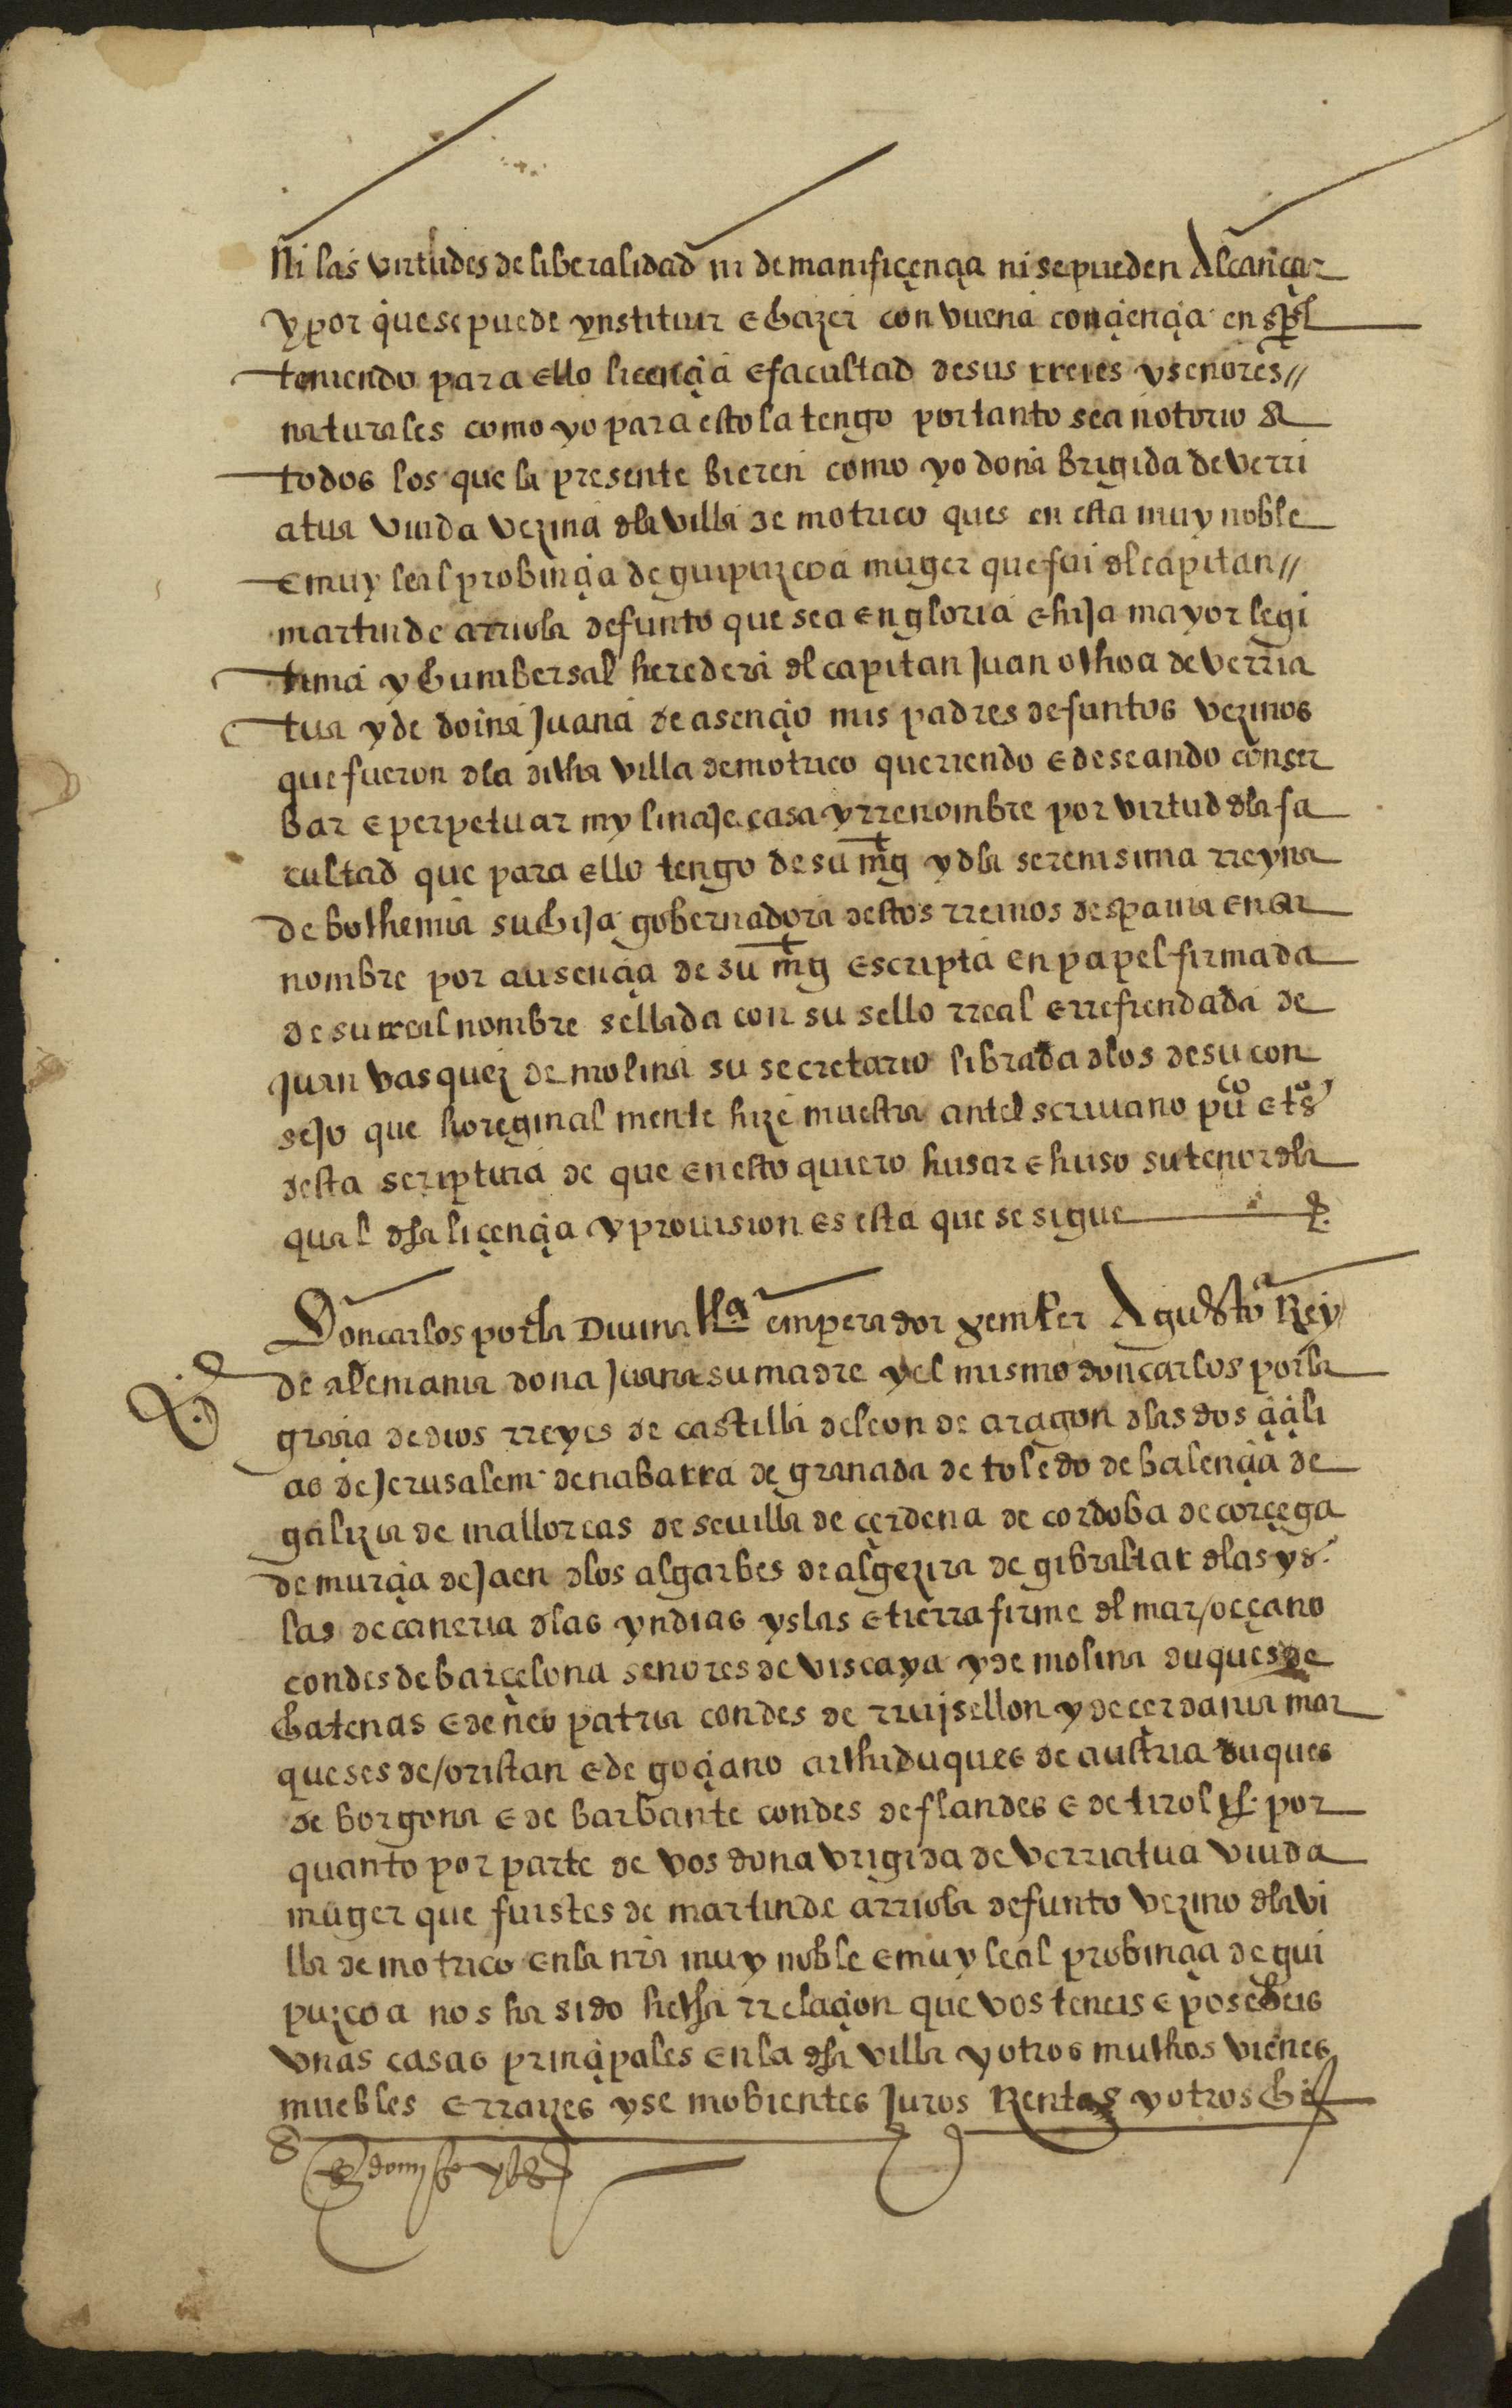 Ni las virtudes de liberalidad ni de manifiçençia ni se pueden Alcançar
y por que se puede ynstituir e hazer con vuena conçiençia en espeçial
teniendo para ello liçençia e facultad de sus rreies y señores //
naturales como yo para esto la tengo por tanto sea notorio A
todos los que la presente bieren como yo doña brigida de verri
atua viuda vezina dela villa de motrico ques en esta muy noble
e muy leal probinçia de guipuzcoa muger que fui del capitan //
martin de arriola defunto que sea en gloria e hija mayor legi
tima y hunibersal heredera del capitan Juan othoa de verria
tua y de doña Juana de asençio mis padres defuntos vezinos
que fueron dela dicha villa de motrico queriendo e deseando conser
bar e perpetuar my linaje casa y rrenombre por virtud dela fa
cultad que para ello tengo de su mgt y dela serenisima rreyna
de bothemia su hija gobernadora destos rreinos despaña en su
nombre por ausençia de su mgt escripta en papel firmada
de su rreal nombre sellada con su sello rreal e rrefrendada de
Juan vasquez de molina su secretario librada delos de su con
sejo que horeginal mente hize muestra antel scriuano puco e tso
desta scriptura de que en esto quiero husar e huso su tenor dela
qual dha liçençia y prouision es esta que se sigue
Don carlos por la Divina cla emperador semper Agusto Rey
de alemania doña Juana su madre y el mismo don carlos por la
graçia de dios rreyes de castilla de leon de aragon delas dos çiçili
as de Jerusalem de nabarra de granada de toledo de balençia de
galizia de mallorcas de seuilla de çerdena de cordoba de corçega
de murçia de Jaen delos algarbes de algezira de gibraltar delas ys
las de caneria delas yndias yslas e tierra firme del mar / oçeano
condes de barçelona señores de viscaya y de molina duques de
hatenas e de neo patria condes de rruisellon y de çerdania mar
queses de / oristan e de goçiano arthiduques de austria duques
de borgoña e de barbante condes de flandes e de tirol &. por
quanto por parte de vos dona vrigida de verriatua viuda
muger que fuistes de martin de arriola defunto vezino dela vi
lla de motrico en la nra muy noble e muy leal probinçia de gui
puzcoa nos ha sido hecha rrelaçion que vos teneis e poseheis
vnas casas prinçipales en la dha villa y otros muthos vienes
muebles e rrayzes y se mobientes Juros Rentas y otros hi